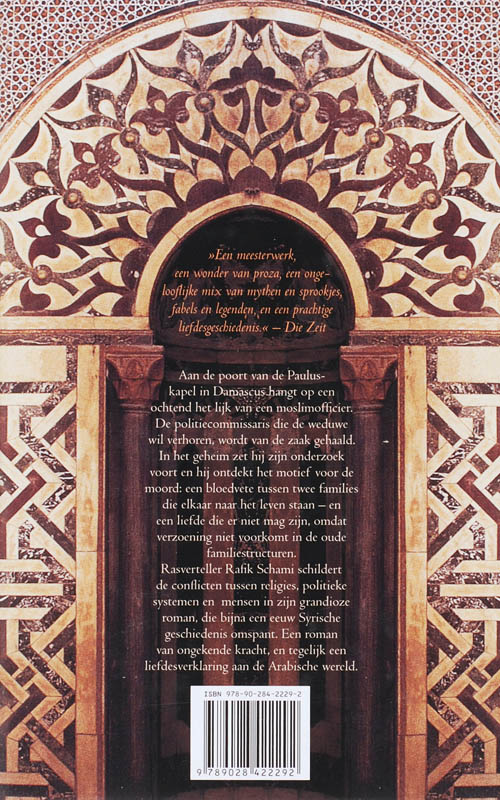 »Een meesterwerk,
een wonder van proza, een onge-
looflijke mix van mythen en sprookjes,
fabels en legenden, en een prachtige
liefdesgeschiedenis.« – Die Zeit
Aan de poort van de Paulus-
kapel in Damascus hangt op een
ochtend het lijk van een moslimofficier.
De politiecommissaris die de weduwe
wil verhoren, wordt van de zaak gehaald.
In het geheim zet hij zijn onderzoek
voort en hij ontdekt het motief voor de
moord: een bloedvete tussen twee families
die elkaar naar het leven staan – en
een liefde die er niet mag zijn, omdat
verzoening niet voorkomt in de oude
familiestructuren.
Rasverteller Rafik Schami schildert
de conflicten tussen religies, politieke
systemen en mensen in zijn grandioze
roman, die bijna een eeuw Syrische
geschiedenis omspant. Een roman
van ongekende kracht, en tegelijk een
liefdesverklaring aan de Arabische wereld.
ISBN 978-90-284-2229-2
9 789028 422292